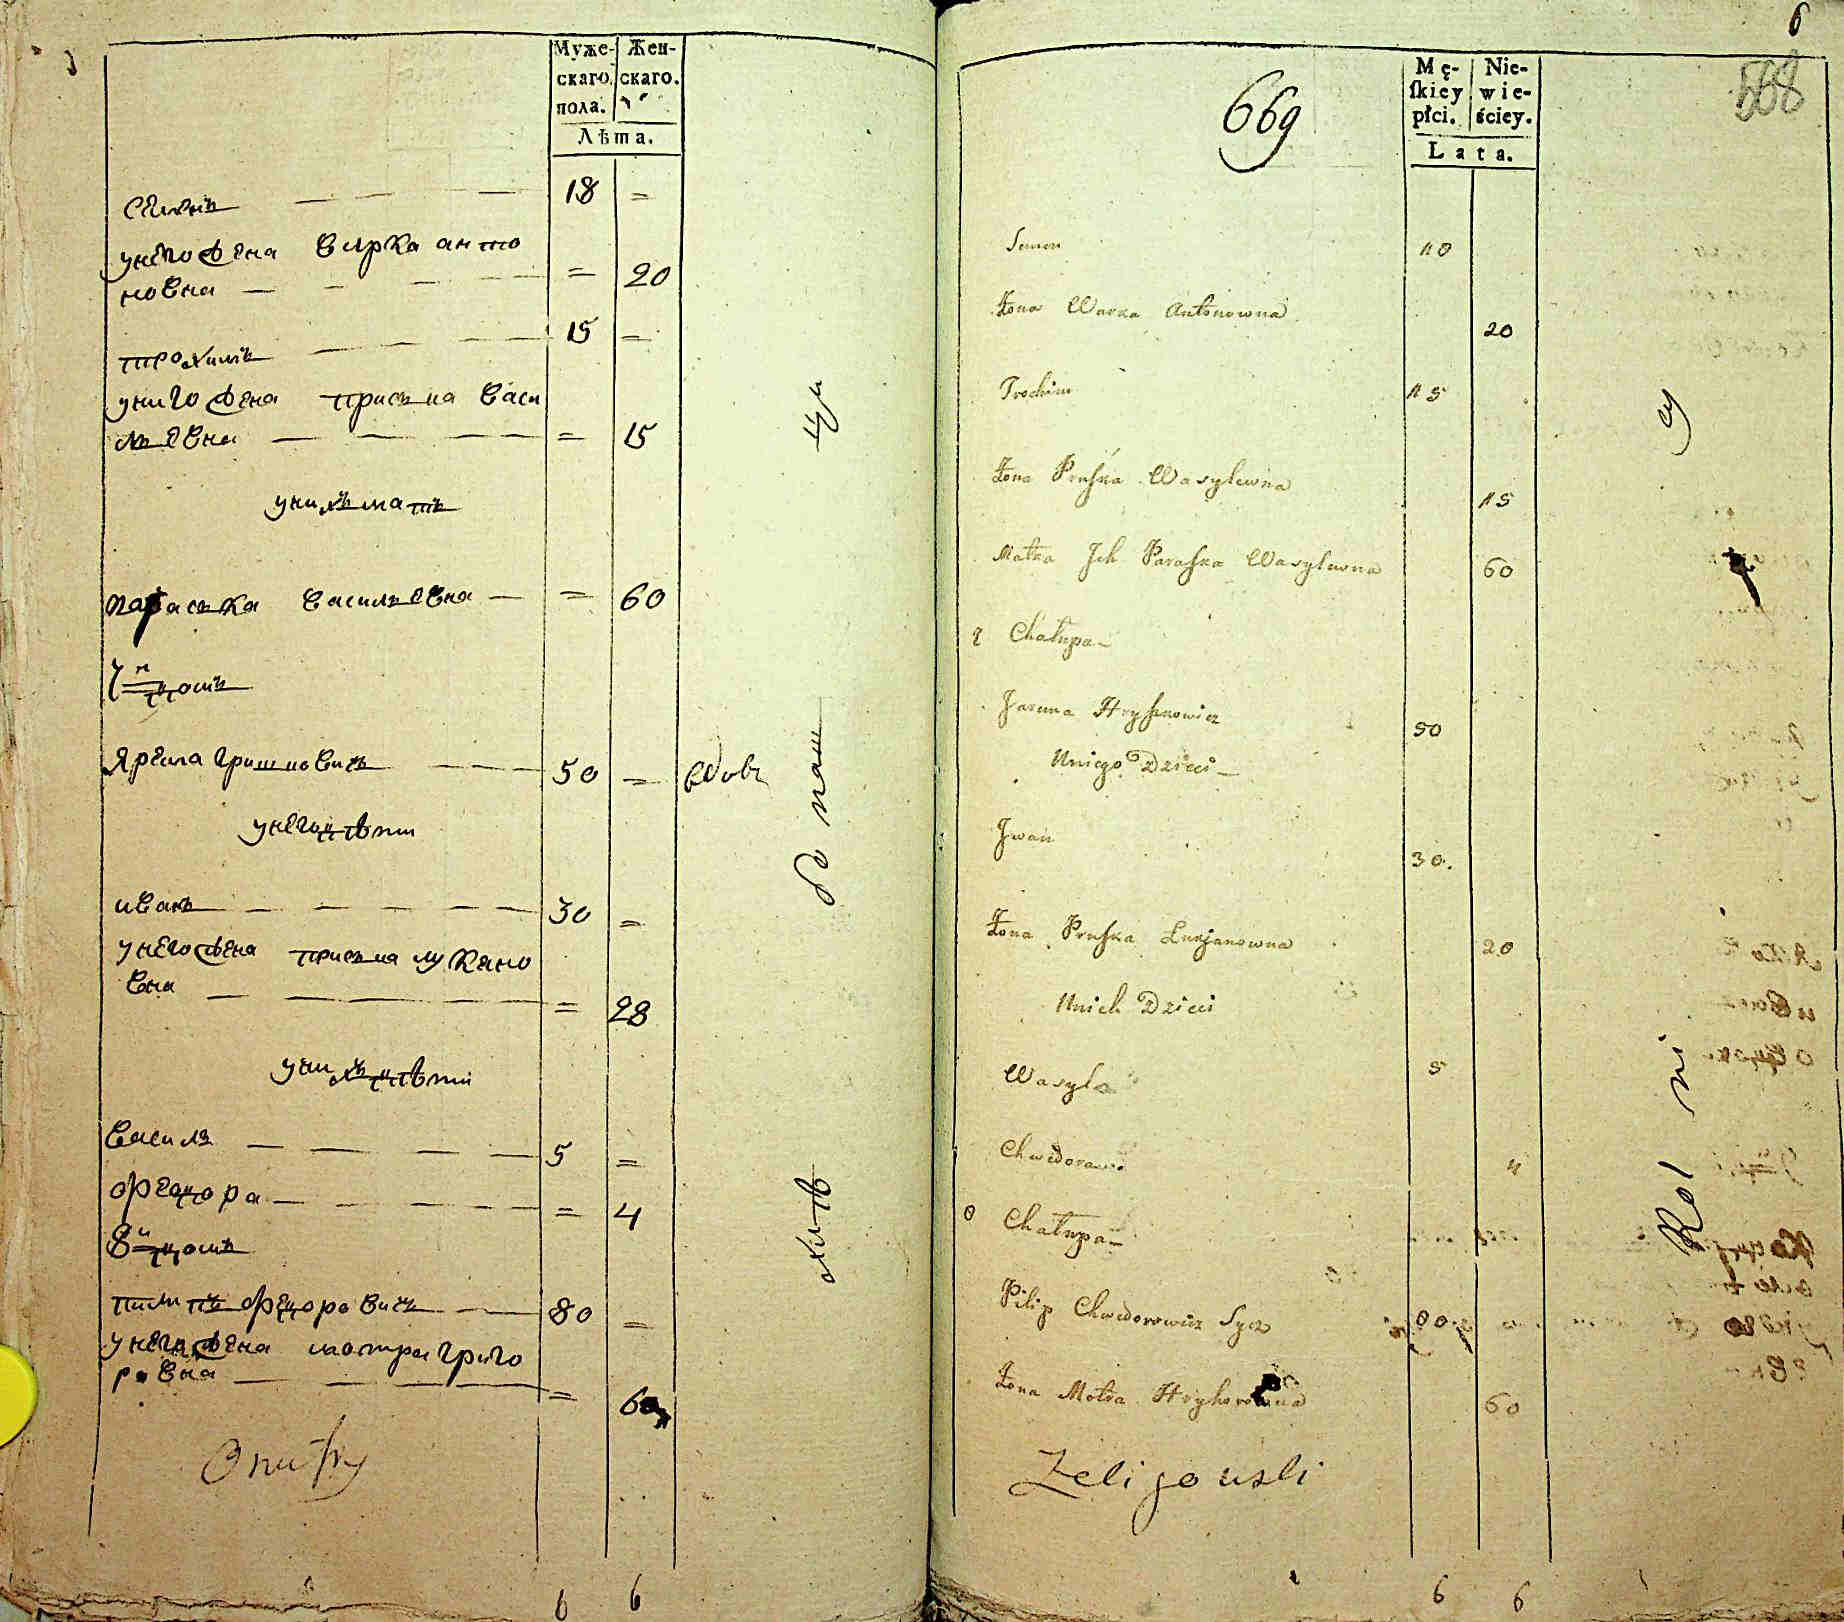 Муже- Жен-
скаго скаго.
пола.
Лѣта.
семенъ 18 =
унего жена варка анто
новна = 20
трохимъ 15 =
униго жена приська васи
льевна = 15
унихъ мать
параська васильевна = 60
7й домъ
ярема гришновичъ 50 = вдовъ
унего дѣти
иванъ 30 =
унего жена приська лукяно
вна = 28
унихъ дѣти
василь 5 =
федора = 4
8й домъ
пилипъ федоровичъ 80 =
унего жена мотра григо
ровна = 60
6 6
6
669
568
Mę- Nie-
ſkiey wie-
płci. ściey.
Lata.
Semen 18
Żona Warka Antonowna 20
Trochim 15
Żona Pruſka Wasylewna 15
Matka Ich Paraſka Wasylewna 60
7 Chałupa
Jarema Hryſznowicz 50
Uniego Dzieci
Iwan 30.
Żona Pruſka Lukjanowna 20
Unich Dzieci
Wasyl 5
Chwedora 4
8 Chałupa
Pilip Chwedorowicz Sycz 80
Żona Motra Hryhorowna 60
Rol ni cy
6 6